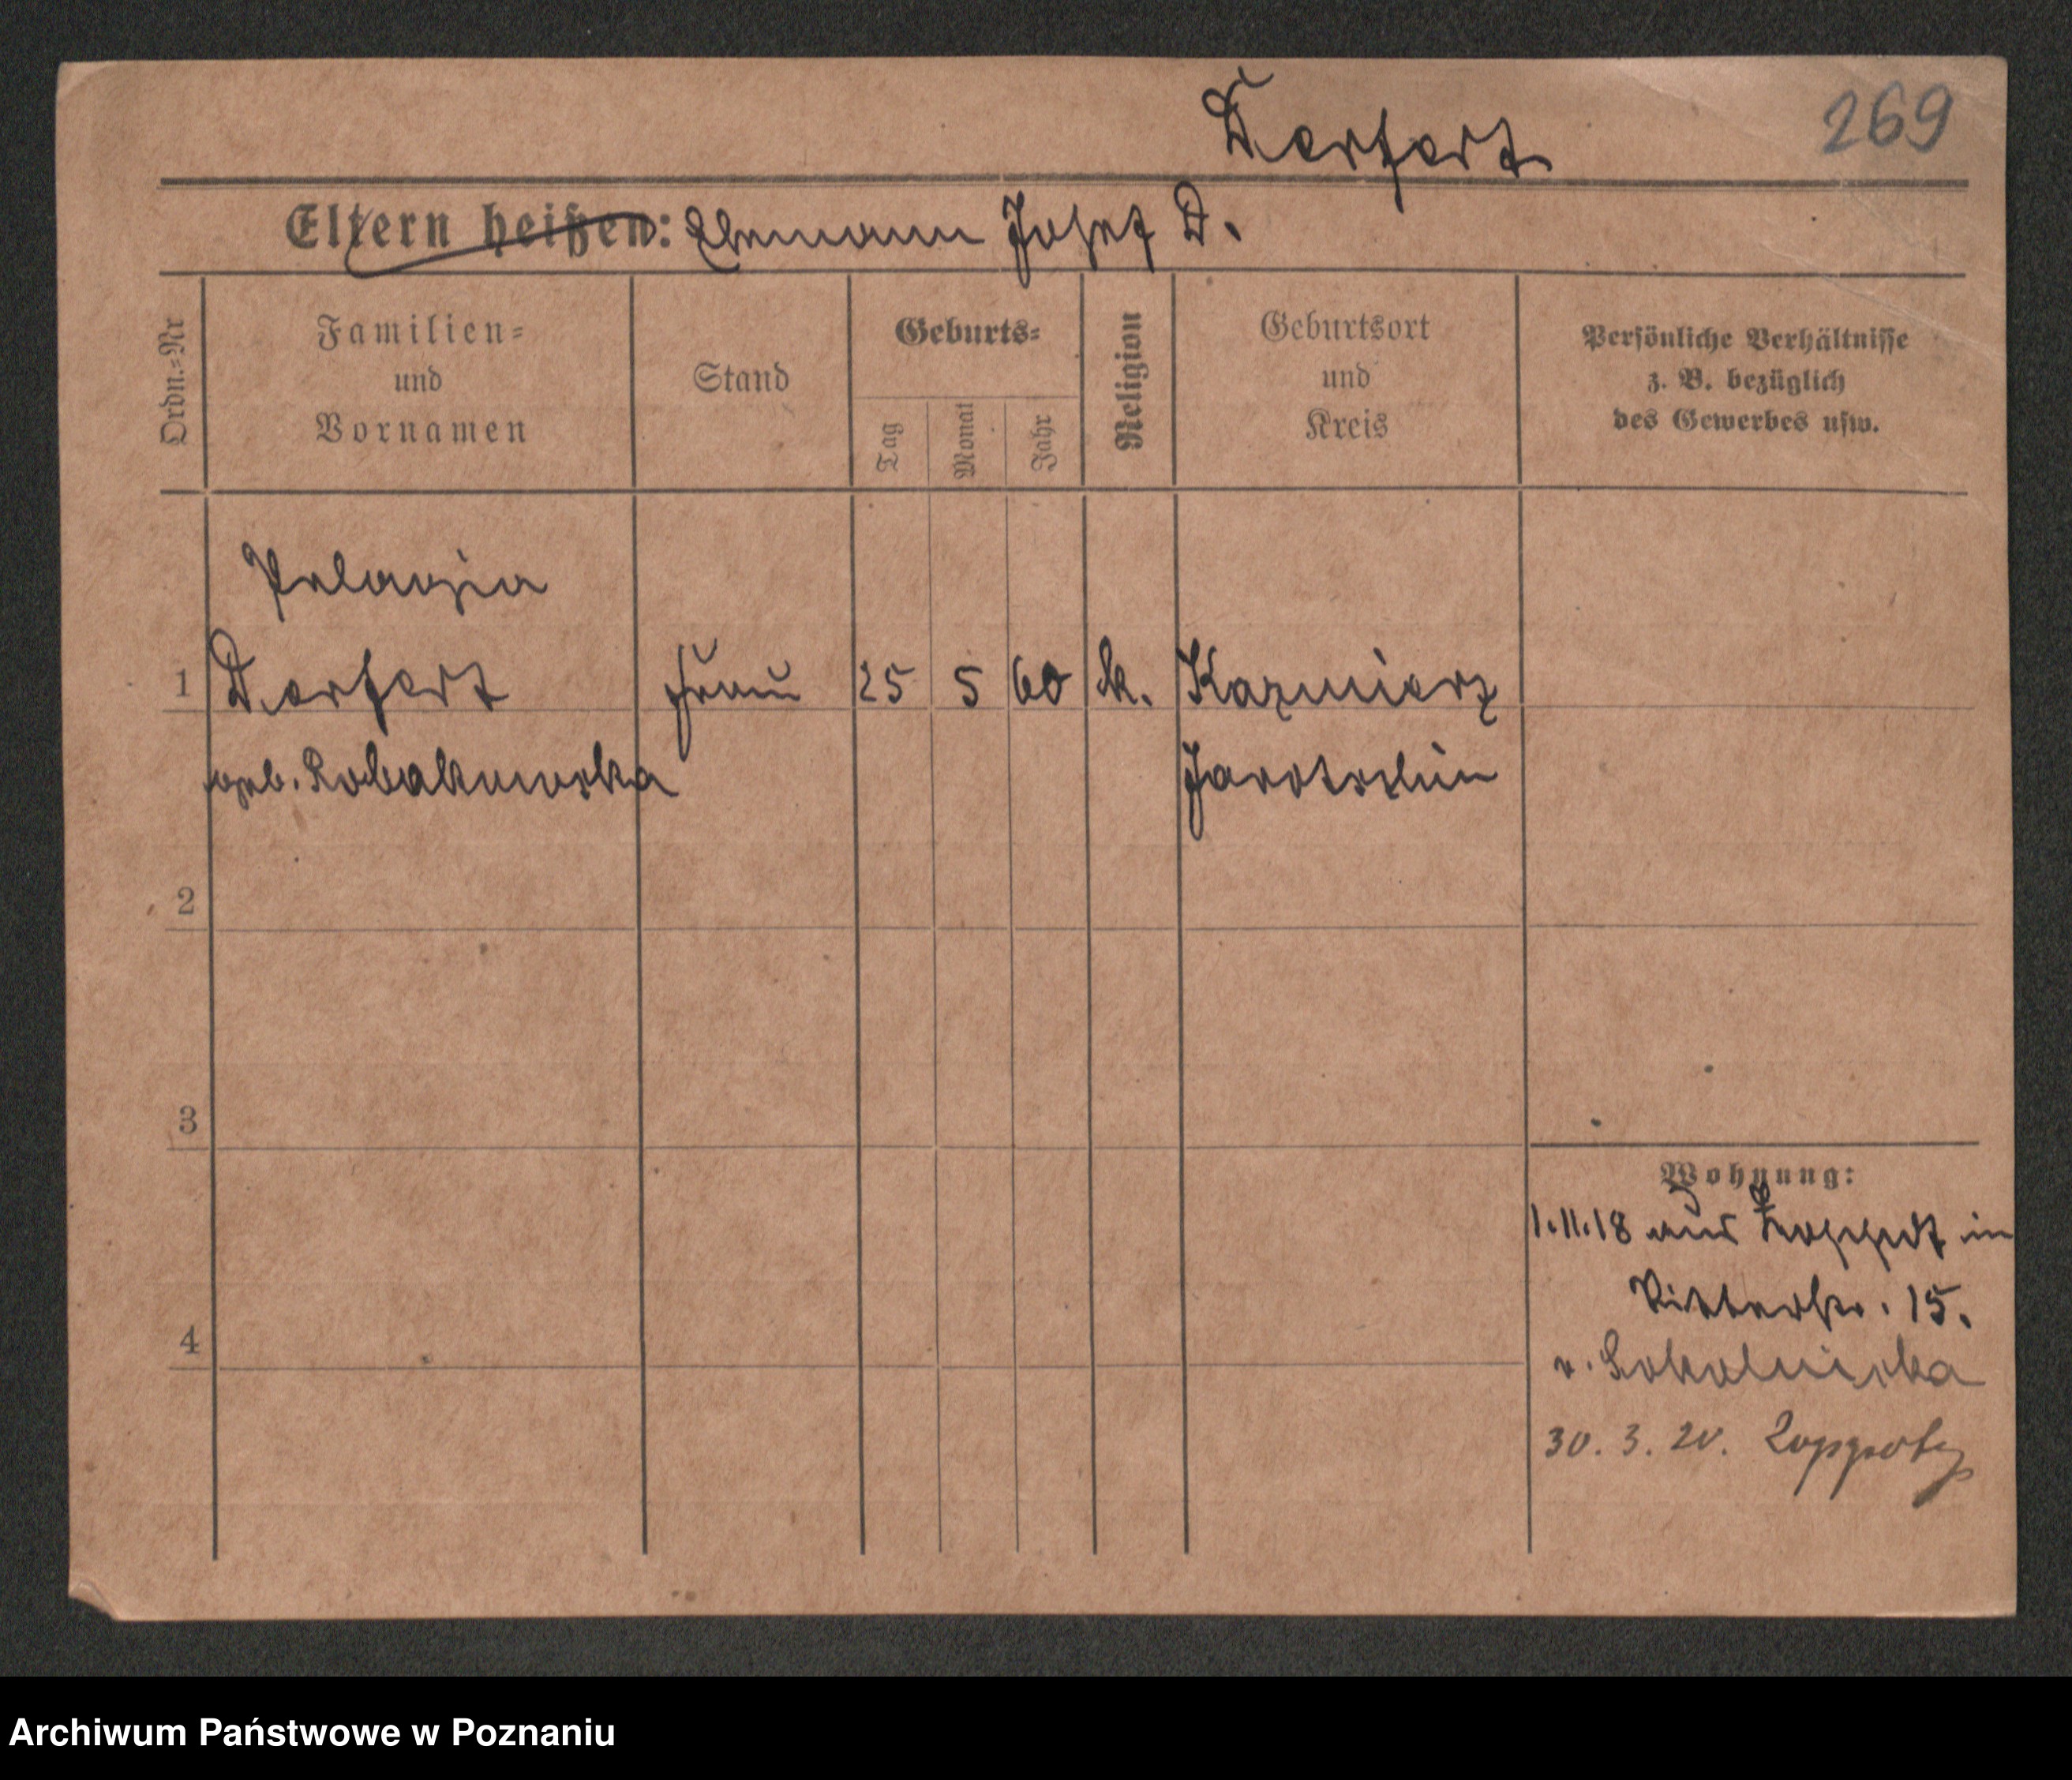 Derfert
269
Eltern heißen: Ehemann Josef D.
Ordn.=Nr
Familien=
und
Vornamen
Stand
Geburts=
Tag
Monat
Jahr
Religion
Geburtsort
und
Kreis
Persönliche Verhältnisse
z. B. bezüglich
des Gewerbes usw.
Pelagia
1 Derfert Frau 25 5 60 k. Kazmierz
geb. Robakowska Jarotschin
2
3
4
Wohnung:
1.11.18 aus Zoppot in
Ritterstr. 15.
v. Sokolnicka
30. 3. 20. Zoppot
Archiwum Państwowe w Poznaniu